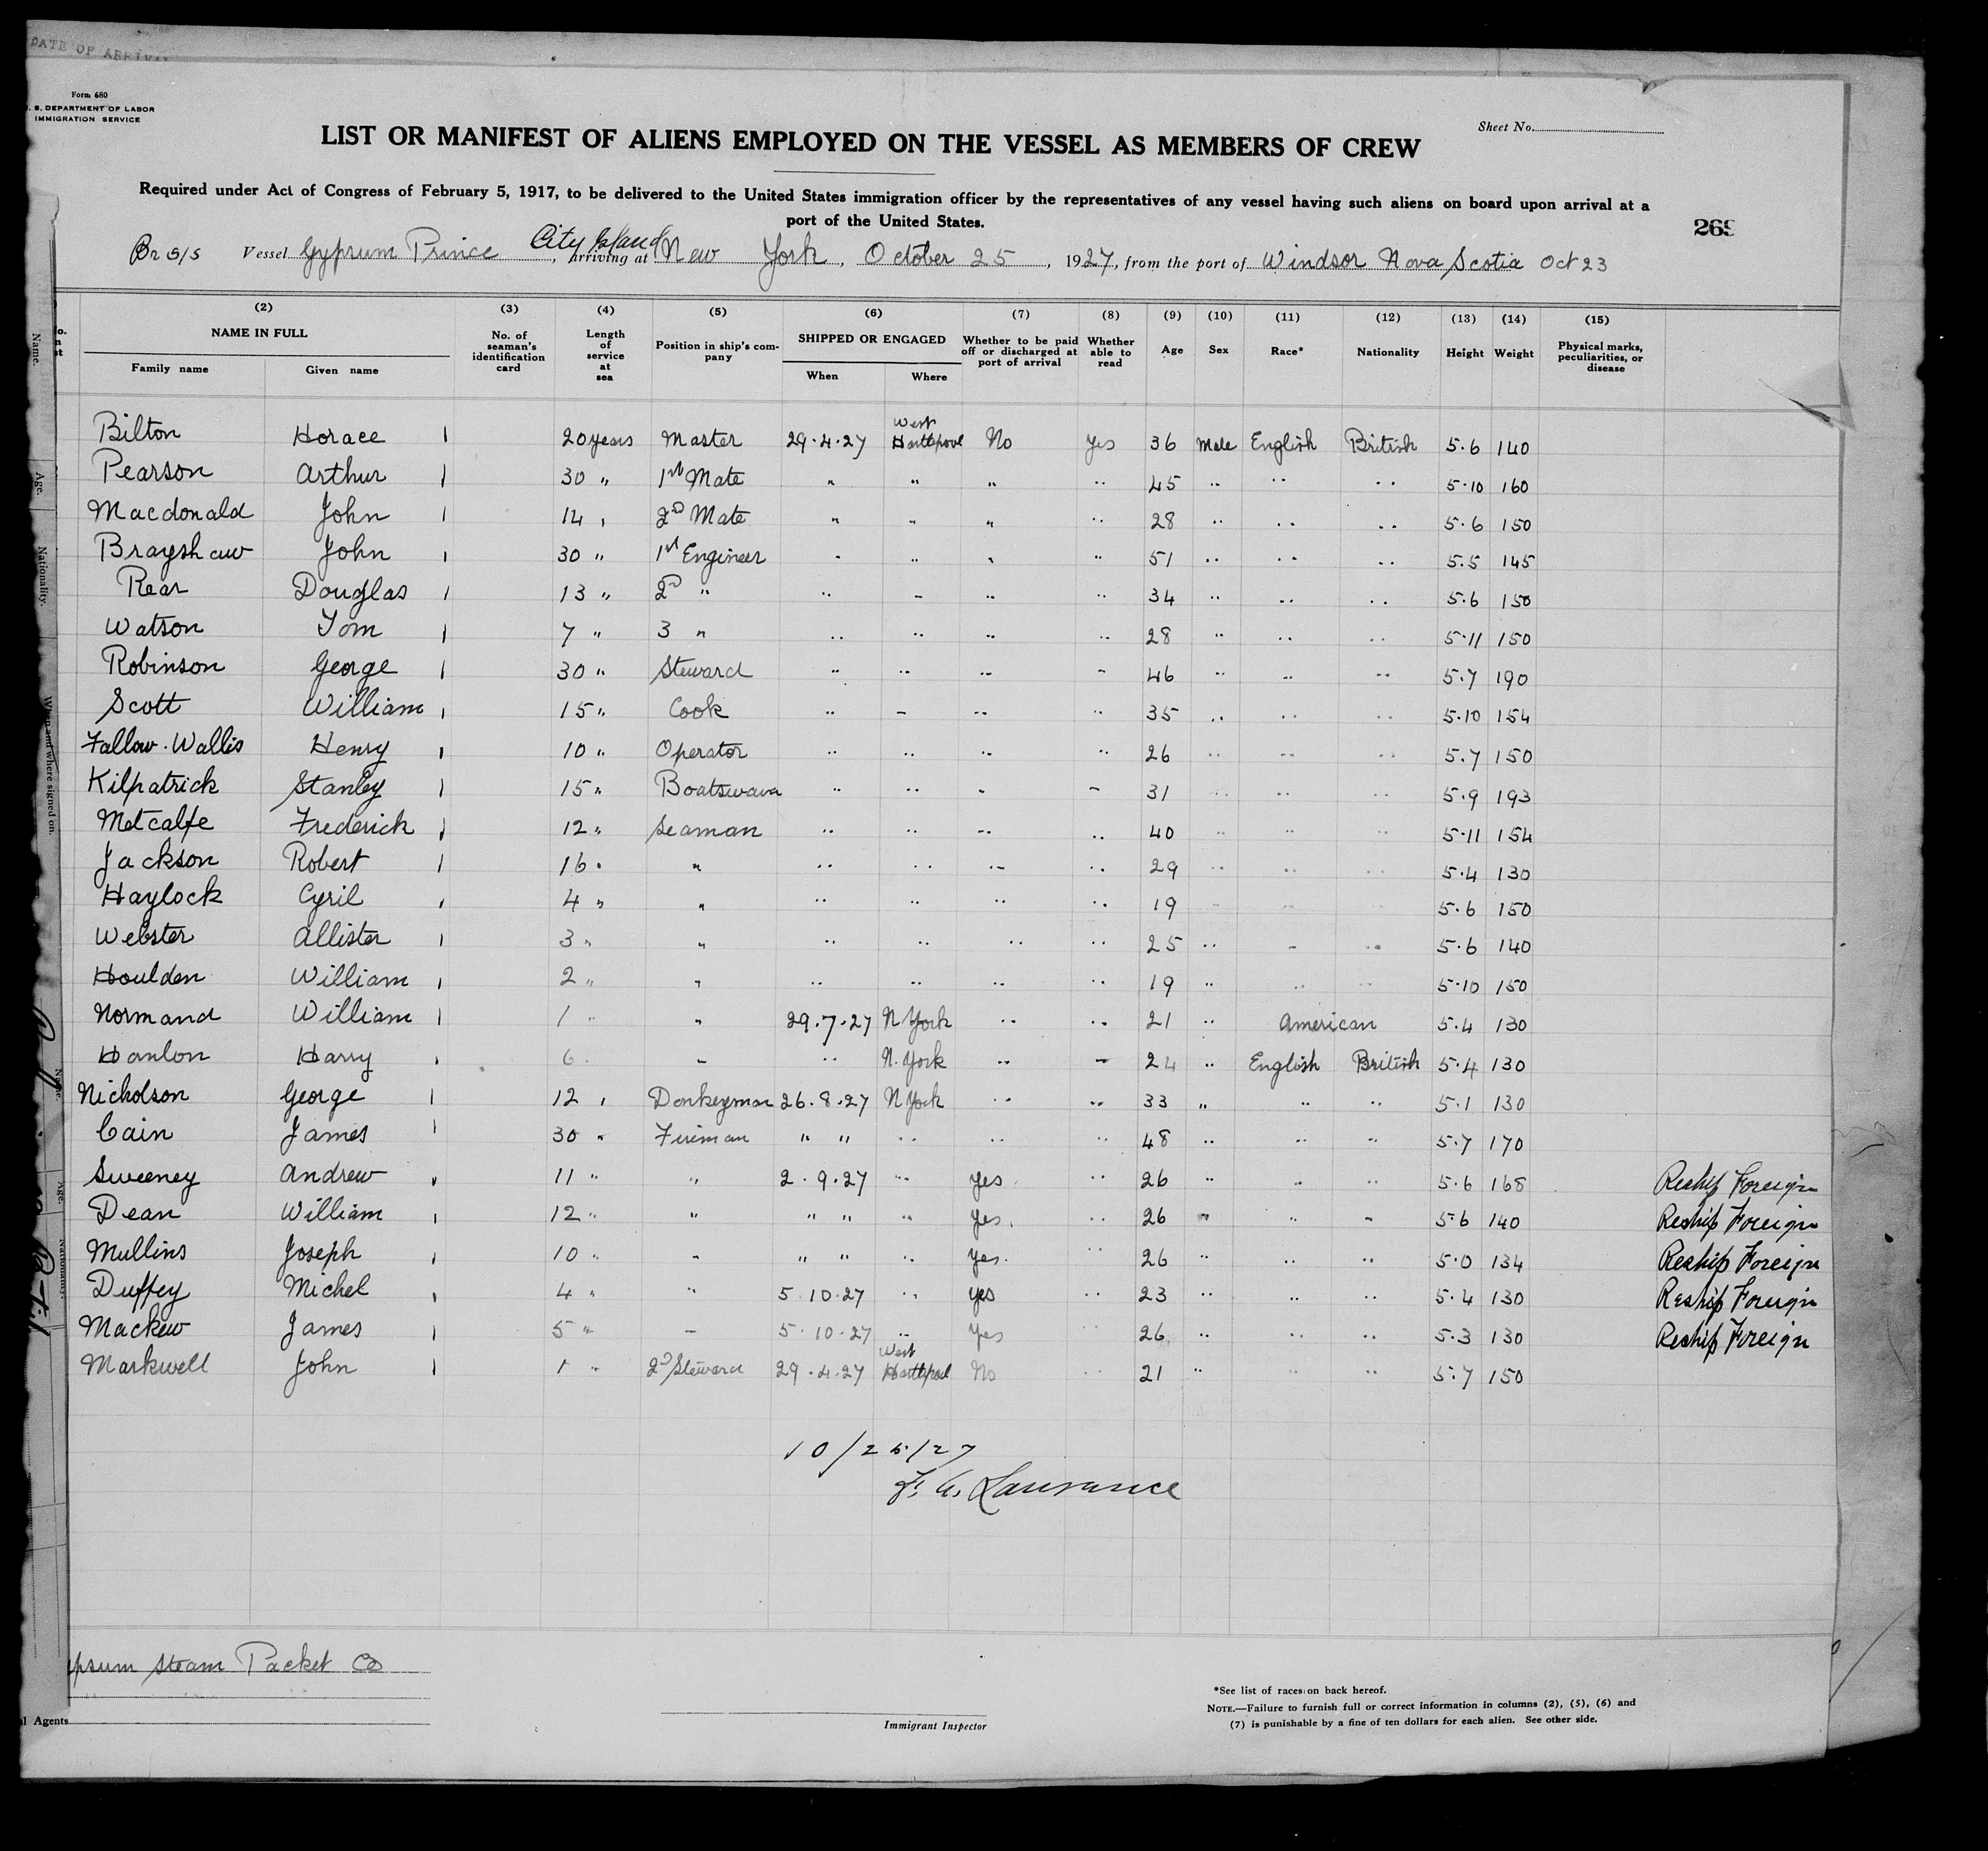 DATE OF ARRIVAL
Form 680
S. DEPARTMENT OF LABOR
IMMIGRATION SERVICE
Sheet No.
LIST OR MANIFEST OF ALIENS EMPLOYED ON THE VESSEL AS MEMBERS OF CREW
Required under Act of Congress of February 5, 1917, to be delivered to the United States immigration officer by the representatives of any vessel having such aliens on board upon arrival at a
port of the United States.
269
Br S/S Vessel Gypsum Prince, arriving at City Island New York, October 25, 1927, from the port of Windsor Nova Scotia Oct 23
(2) (3) (4) (5) (6) (7) (8) (9) (10) (11) (12) (13) (14) (15)
NAME IN FULL No. of seaman's identification card Length of service at sea Position in ship's company SHIPPED OR ENGAGED Whether to be paid off or discharged at port of arrival Whether able to read Age Sex Race* Nationality Height Weight Physical marks, peculiarities, or disease
Family name Given name When Where
Bilton Horace 1 20 years Master 29.4.27 West Hartlepool No Yes 36 Male English British 5.6 140
Pearson Arthur 1 30 " 1st Mate " " " " 45 " " " 5.10 160
Macdonald John 1 14 " 2nd Mate " " " " 28 " " " 5.6 150
Brayshaw John 1 30 " 1st Engineer " " " " 51 " " " 5.5 145
Rear Douglas 1 13 " 2nd " " " " " 34 " " " 5.6 150
Watson Tom 1 7 " 3 " " " " " 28 " " " 5.11 150
Robinson George 1 30 " Steward " " " " 46 " " " 5.7 190
Scott William 1 15 " Cook " " " " 35 " " " 5.10 154
Fallow-Wallis Henry 1 10 " Operator " " " " 26 " " " 5.7 150
Kilpatrick Stanley 1 15 " Boatswain " " " " 31 " " " 5.9 193
Metcalfe Frederick 1 12 " Seaman " " " " 40 " " " 5.11 154
Jackson Robert 1 16 " " " " " " 29 " " " 5.4 130
Haylock Cyril 1 4 " " " " " " 19 " " " 5.6 150
Webster Allister 1 3 " " " " " " 25 " " " 5.6 140
Houlden William 1 2 " " " " " " 19 " " " 5.10 150
Normand William 1 1 " " 29.7.27 N York " " 21 " American 5.4 130
Hanlon Harry 1 6 " " N. York " " 24 " English British 5.4 130
Nicholson George 1 12 " Donkeyman 26.8.27 N York " " 33 " " " 5.1 130
Cain James 1 30 " Fireman " " " " " 48 " " " 5.7 170
Sweeney Andrew 1 11 " " 2.9.27 " Yes " 26 " " " 5.6 168 Reship Foreign
Dean William 1 12 " " " " " Yes. " 26 " " " 5.6 140 Reship Foreign
Mullins Joseph 1 10 " " " " " Yes. " 26 " " " 5.0 134 Reship Foreign
Duffey Michel 1 4 " " 5.10.27 " yes " 23 " " " 5.4 130 Reship Foreign
Mackew James 1 5 " " 5.10.27 " Yes " 26 " " " 5.3 130 Reship Foreign
Markwell John 1 1 " 2nd Steward 29.4.27 West Hartlepool No " 21 " " " 5.7 150
10/25/27
F. A. Lawrance
psum Steam Packet Co
l Agents
Immigrant Inspector
*See list of races on back hereof.
NOTE.—Failure to furnish full or correct information in columns (2), (5), (6) and
(7) is punishable by a fine of ten dollars for each alien. See other side.
Name.
Age.
Nationality.
When and where signed on.
Name.
Age.
Nationality.